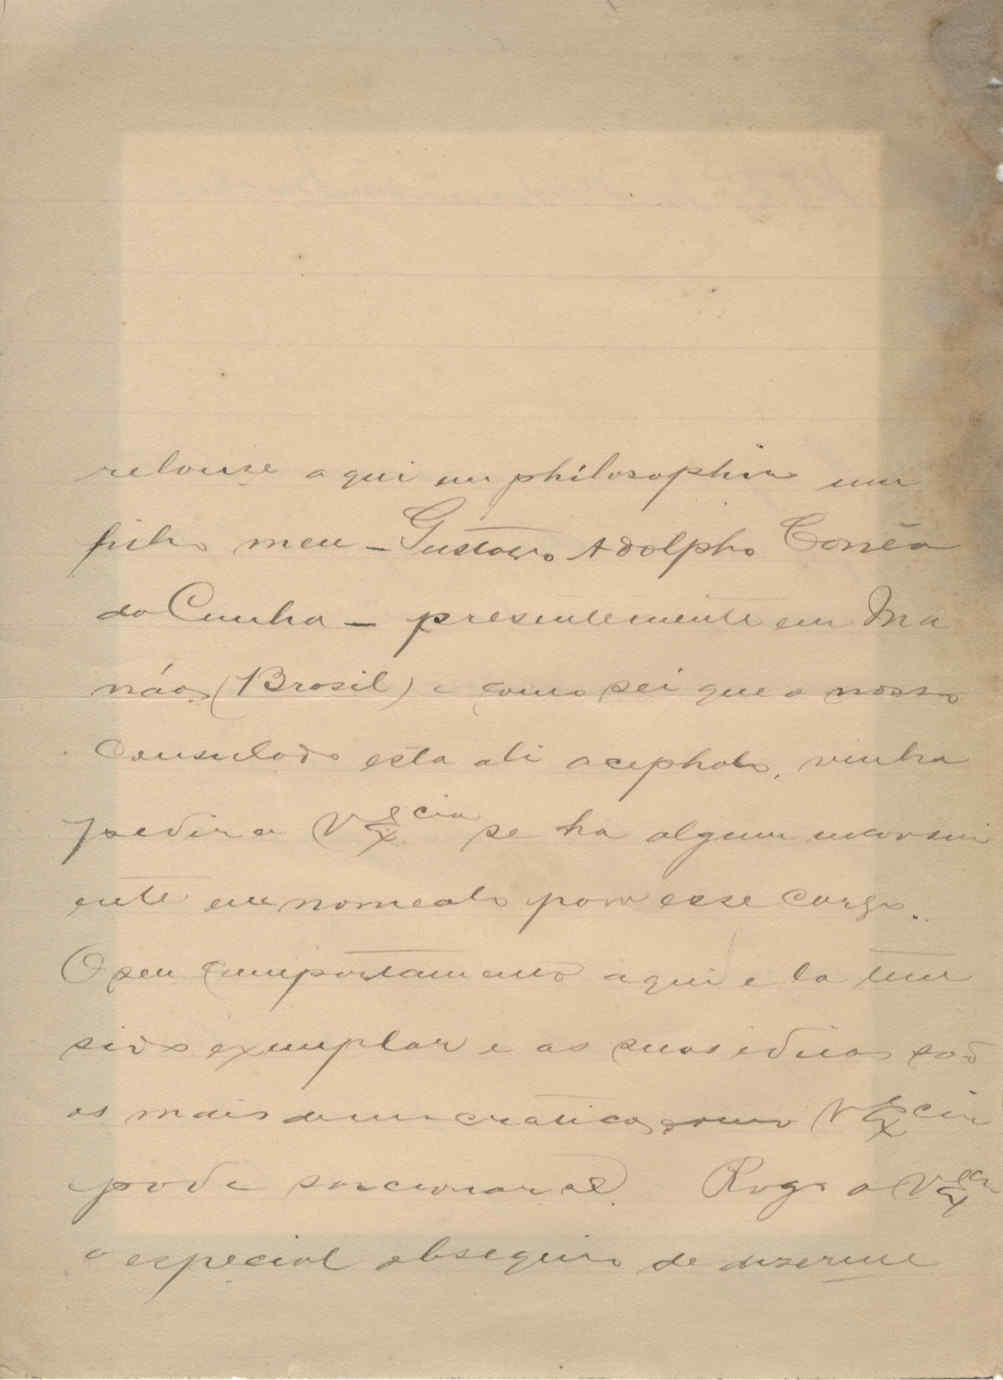 aqui em philosophia um
filho meu - Gustavo Adolpho Corrêa
da Cunha - presentemente em Ma
náos (Brasil) e como sei que o nosso
Consulado esta ali acephalo, vinha
pedir a V Ex.cia se ha algum inconveni
ente em nomealo para esse cargo.
O seu comportamento aqui e la tem
sido exemplar e as suas ideias são
as mais democraticas, como V Ex.cia
pode Rogo a V Ex.cia
o especial obsequio de dizerme